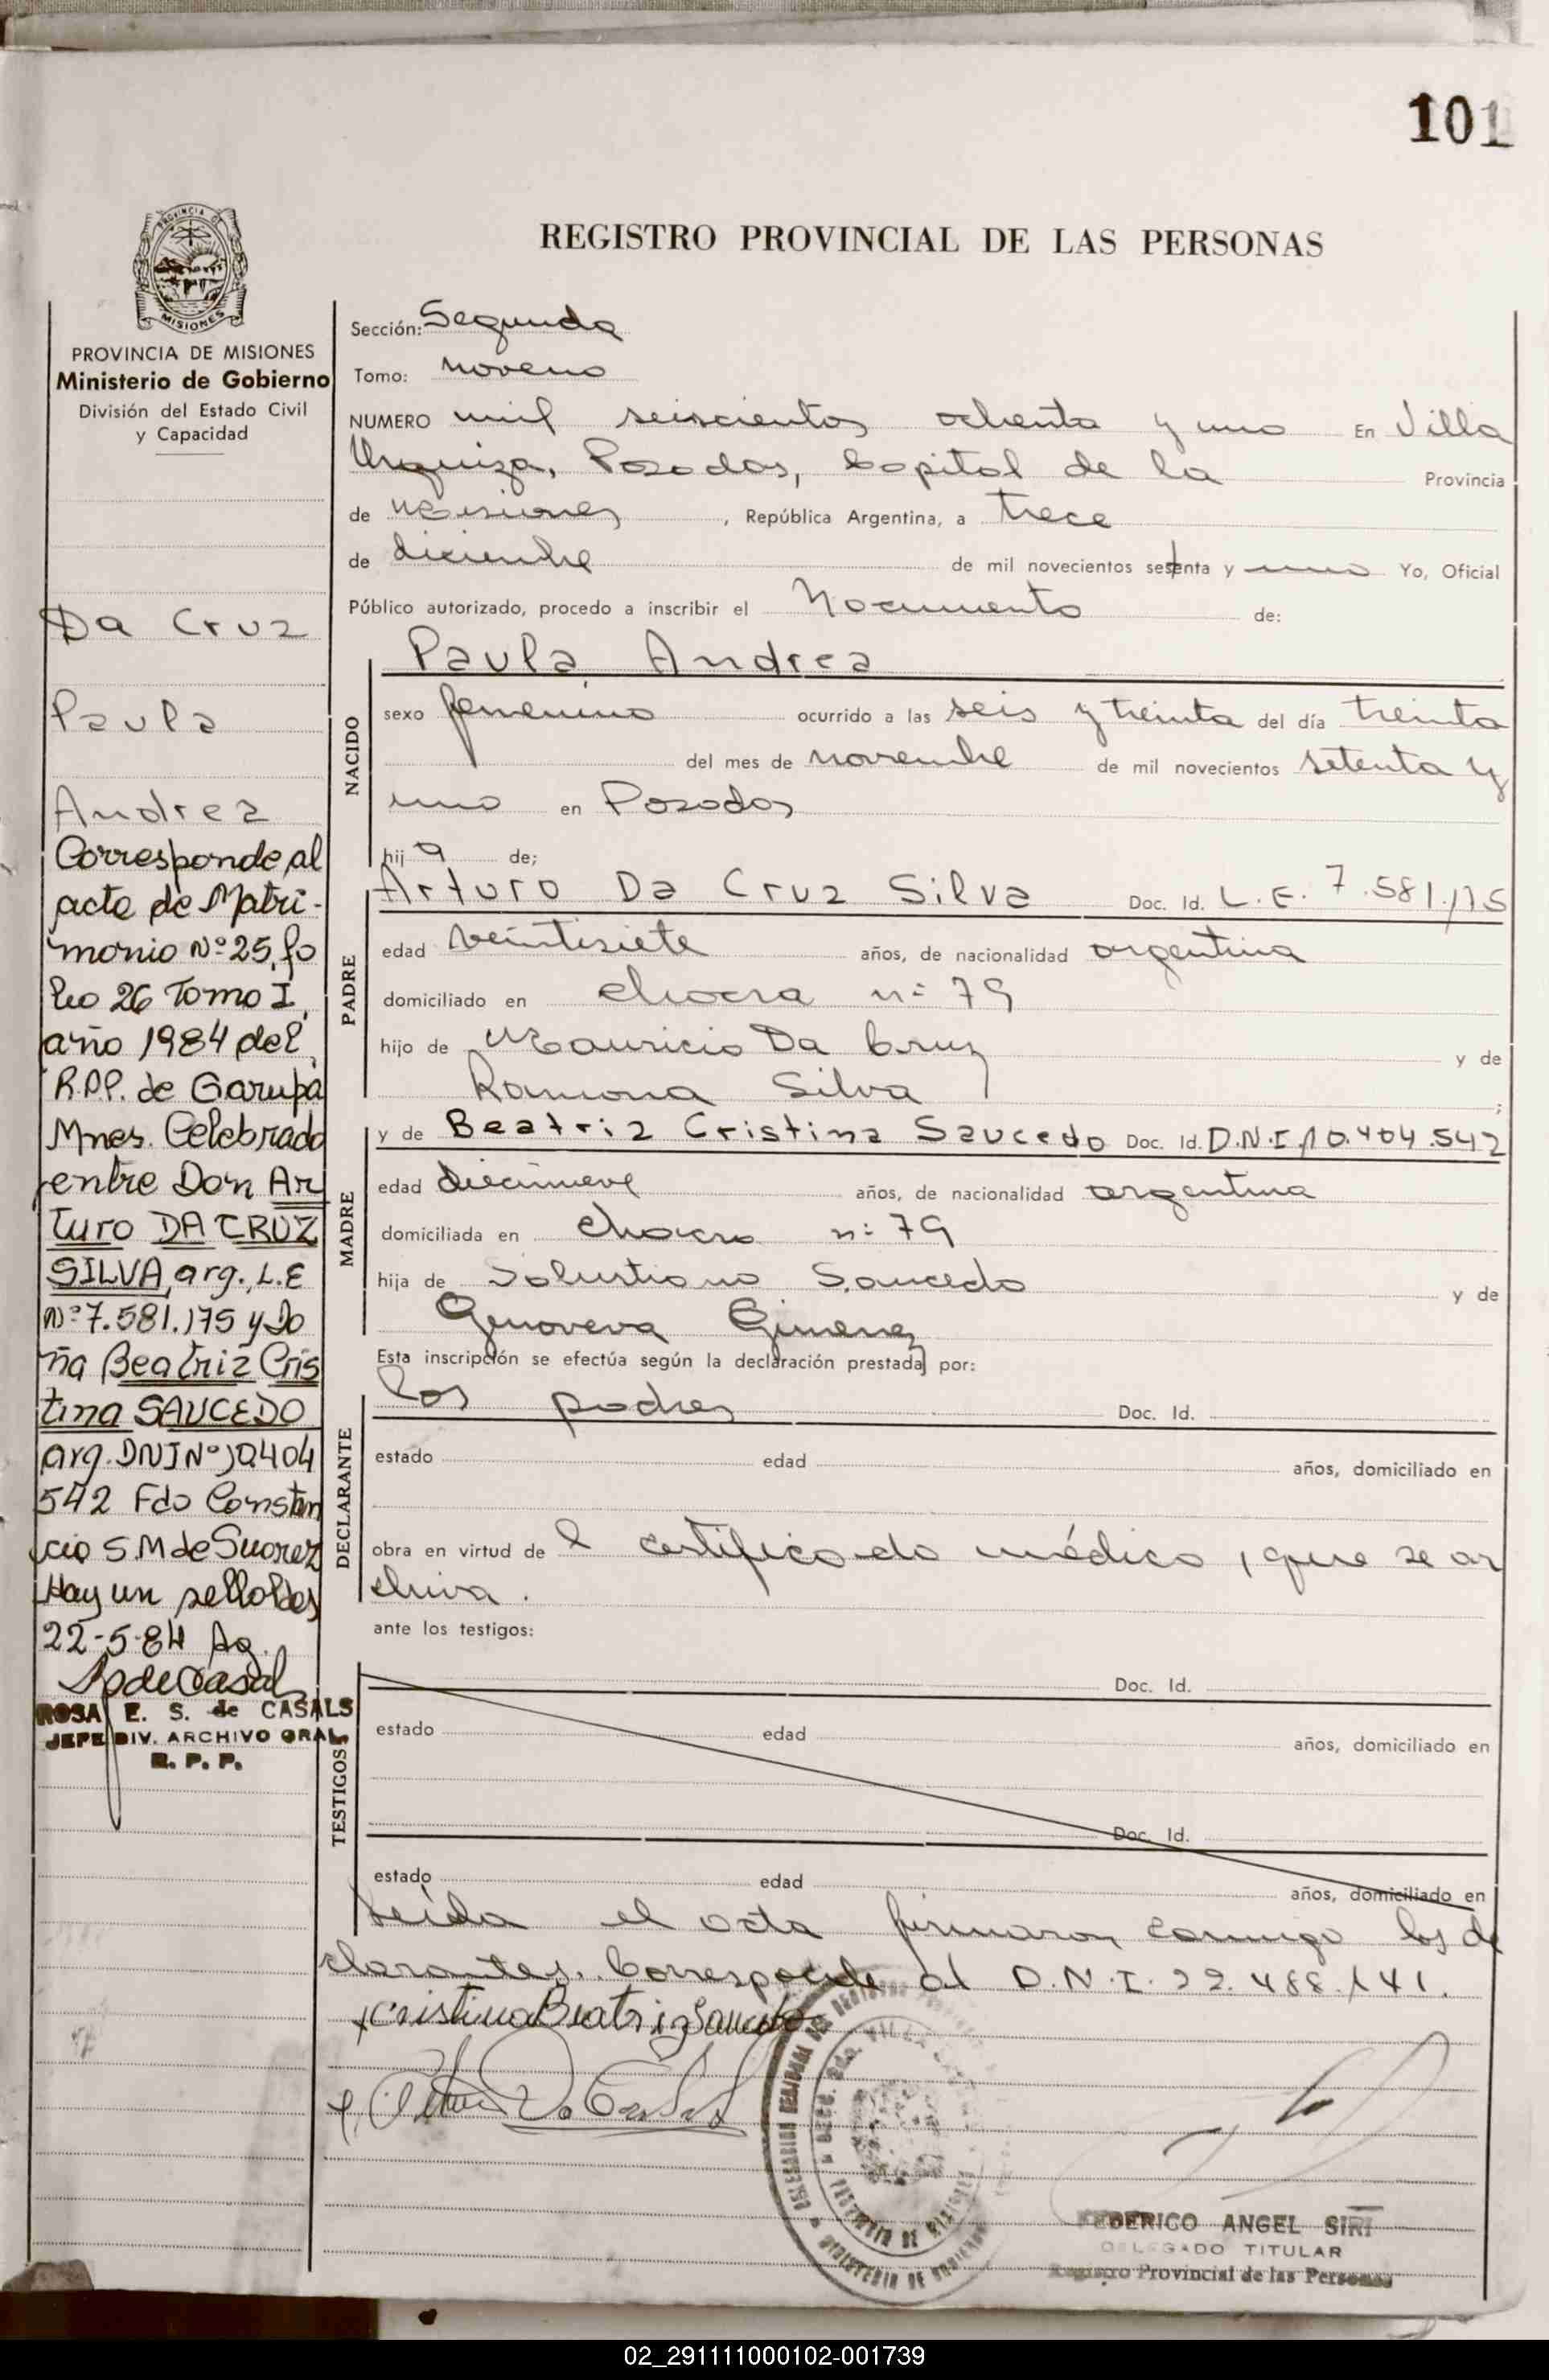 101
REGISTRO PROVINCIAL DE LAS PERSONAS
PROVINCIA DE MISIONES
Ministerio de Gobierno
División del Estado Civil
y Capacidad
Da Cruz
Paula
Andrea
Corresponde al
acta de Matri-
monio Nº 25, fo
lio 26 Tomo I,
año 1984 del
R.P.P. de Garupá
Mnes. Celebrado
entre Don Ar
turo DA CRUZ
SILVA, arg., L.E
Nº 7.581.175 y Do
ña Beatriz Cris
tina SAUCEDO
arg. DNI Nº 10.404
542 Fdo Constan
cio S.M de Suarez
Hay un sello Pdas
22-5-84
ROSA E. S. de CASALS
JEFE DIV. ARCHIVO GRAL
R. P. P.
Sección: Segunda
Tomo: noveno
NUMERO mil seiscientos ochenta y uno En Villa
Urquiza, Posadas, Capital de la Provincia
de Misiones, República Argentina, a trece
de diciembre de mil novecientos setenta y uno Yo, Oficial
Público autorizado, procedo a inscribir el Nacimiento de:
Paula Andrea
NACIDO
sexo femenino ocurrido a las seis y treinta del día treinta
del mes de noviembre de mil novecientos setenta y
uno en Posadas
hij a de;
Arturo Da Cruz Silva Doc. Id. L.E. 7.581.175
PADRE
edad veintisiete años, de nacionalidad argentina
domiciliado en chacra nº 79
hijo de Mauricio Da Cruz y de
Ramona Silva ;
y de Beatriz Cristina Saucedo Doc. Id. D.N.I. 10.404.542
MADRE
edad diecinueve años, de nacionalidad argentina
domiciliada en chacra nº 79
hija de Salustiano Saucedo y de
Genoveva Gimenez
Esta inscripción se efectúa según la declaración prestada por:
los padres Doc. Id.
DECLARANTE
estado edad años, domiciliado en
obra en virtud de l certificado médico, que se ar
chiva.
ante los testigos:
Doc. Id.
TESTIGOS
estado edad años, domiciliado en
Doc. Id.
estado edad años, domiciliado en
Leída el acta firmaron conmigo los de
clarantes. Corresponde al D.N.I. 22.488.141.
x Cristina Beatriz Saucedo
FEDERICO ANGEL SIRI
DELEGADO TITULAR
Registro Provincial de las Personas
02_291111000102-001739